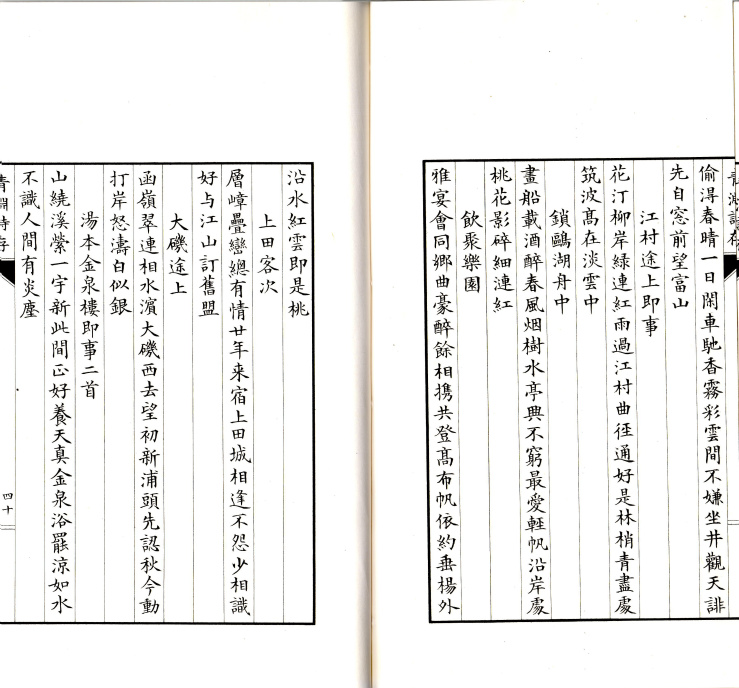 偷淂春晴一日閑車馳香霧彩雲間不嫌坐井觀天誹
先自窓前望富山
江村途上即事
花汀柳岸緑連紅雨過江村曲徑通好是林梢青盡處
筑波髙在淡雲中
鎖鷗湖舟中
畫船載酒醉春風烟樹水亭興不窮最愛輕帆沿岸處
桃花影碎細漣紅
飲聚樂園
雅宴會同鄉曲豪醉餘相携共登髙布帆依約垂楊外
沿水紅雲即是桃
上田客次
層嶂疊巒總有情廿年来宿上田城相逢不怨少相識
好与江山訂舊盟
大磯途上
函嶺翠連相水濱大磯西去望初新浦頭先認秋今動
打岸怒濤白似銀
湯本金泉樓即事二首
山繞溪縈一宇新此間正好養天真金泉浴罷涼如水
不識人間有炎塵
四十